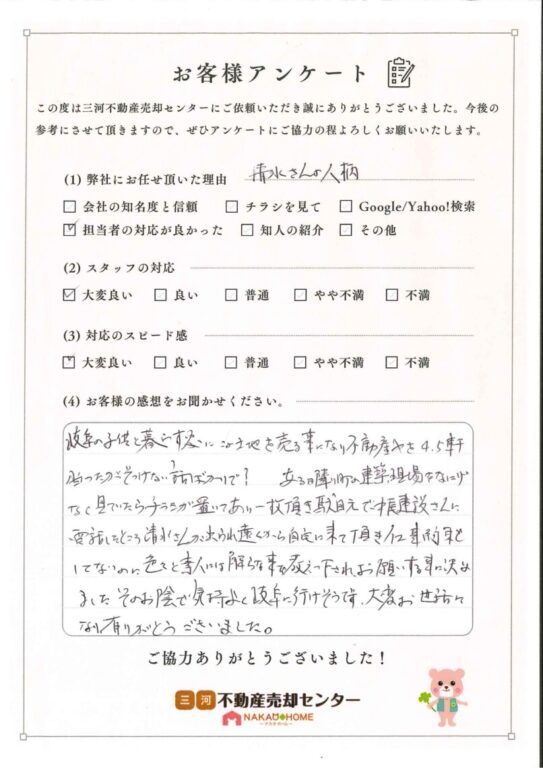 お客様アンケート
この度は三河不動産売却センターにご依頼いただき誠にありがとうございました。今後の
参考にさせて頂きますので、ぜひアンケートにご協力の程よろしくお願いいたします。
(1) 弊社にお任せ頂いた理由 清水さんの人柄
会社の知名度と信頼 チラシを見て Google/Yahoo!検索
担当者の対応が良かった 知人の紹介 その他
(2) スタッフの対応
大変良い 良い 普通 やや不満 不満
(3) 対応のスピード感
大変良い 良い 普通 やや不満 不満
(4) お客様の感想をお聞かせください。
岐阜の子供と暮らす為に この土地を売る事になり不動産やを4.5軒
そっけない ? ある日隣り町の建築現場をなにげ
なく見ていたらチラシが置いてあり一枚頂き 建設さんに
電話したところ清水さんが出られ遠くから自宅に来て頂き
してないのに色々と素人には解らな事を教えて下されお願いする事に決め
ました そのお陰で気持よく岐阜に行けそうです、大変お世話に
なり有りがとうございました。
ご協力ありがとうございました！
三河不動産売却センター
NAKAU HOME